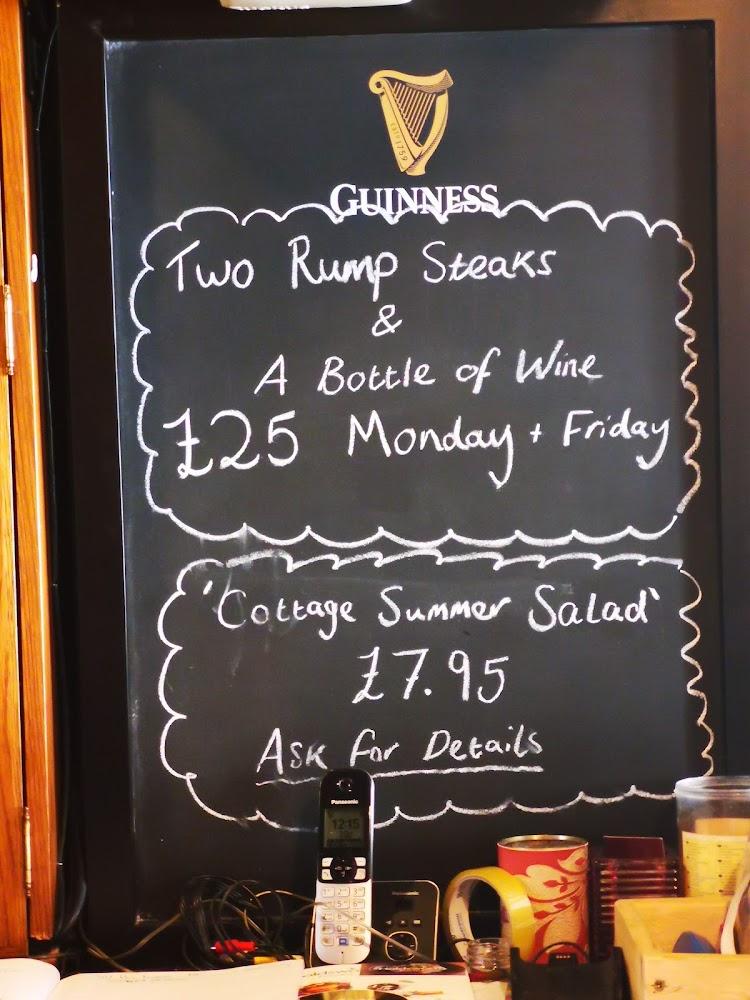 EST 1759
GUINNESS
Two Rump Steaks
&
A Bottle of Wine
£25 Monday + Friday
'Cottage Summer Salad'
£7.95
Ask for Details
Panasonic
12:15